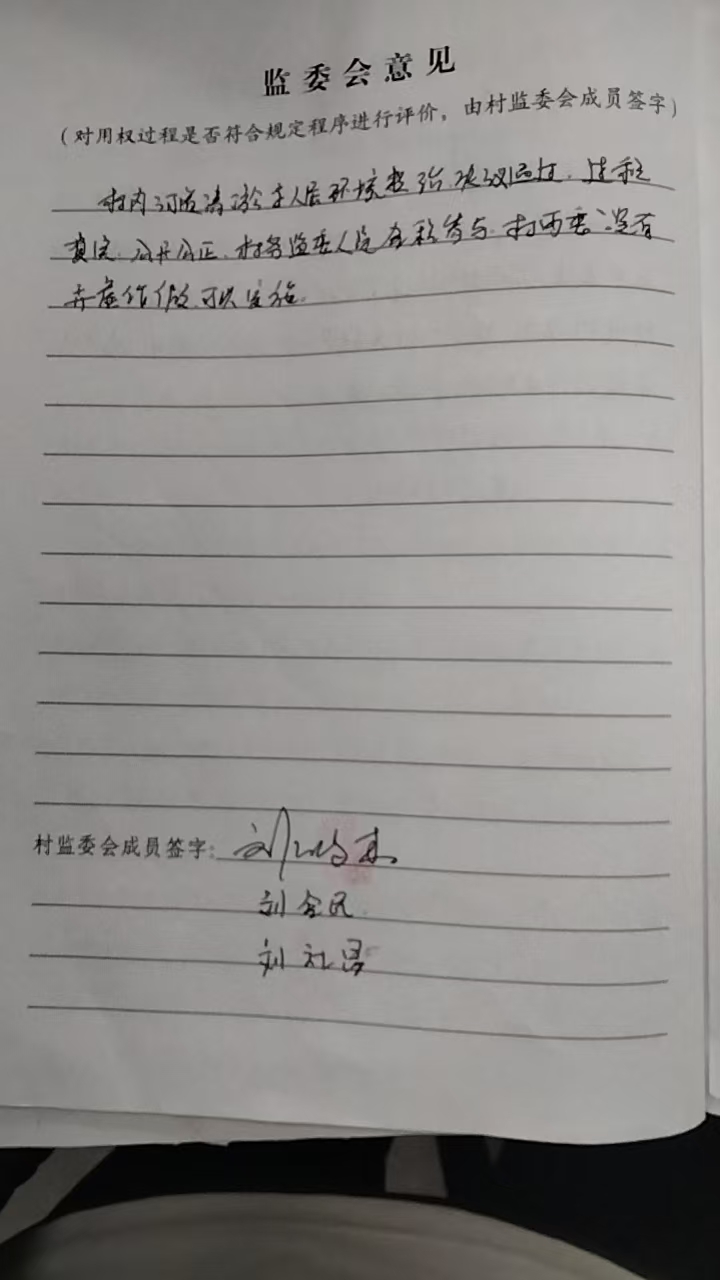 监委会意见
（对用权过程是否符合规定程序进行评价，由村监委会成员签字）
村内河道清淤和人居环境整治，决议通过，过程
真实、公开公正，村务监委人员积极参与，村两委没有
弄虚作假，可以实施。
村监委会成员签字：刘
刘金民
刘礼